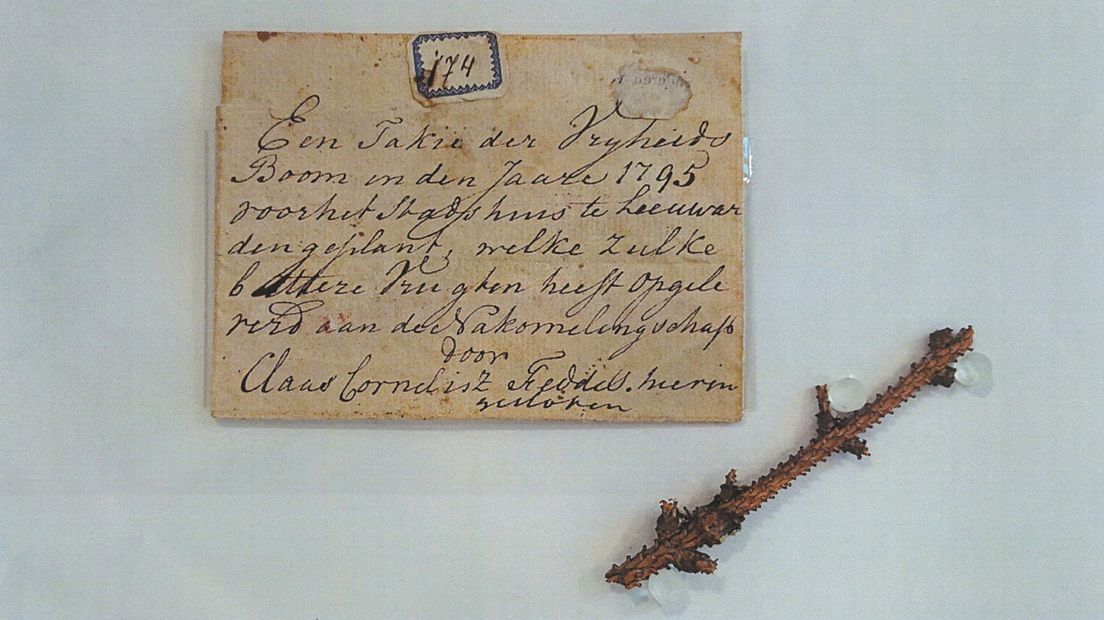 174
Een Takie der Vryheids
Boom in den Jaare 1795
voor het Stads huis te Leeuwar
den geplant, welke zulke
bittere Vrugten heeft opgele
verd aan de Nakomelingschap
door
Claas Cornelisz Feddes. hierin
gesloten